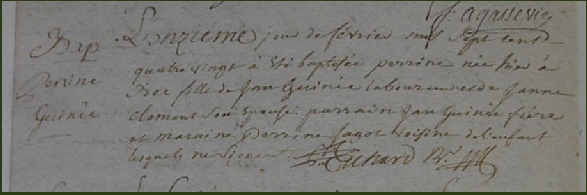 f. agasse vic
Bap
Perrine
Guinée
L'onzieme jour de février mil sept cent
quatre vingt à été baptisée perrine née hier à
fille de Jan Guinée laboureur et de Janne
clement son epouse parrain Jan Guinée frère
et maraine Perrine Jagot voisine de l'enfant
lesquels ne signent Richard